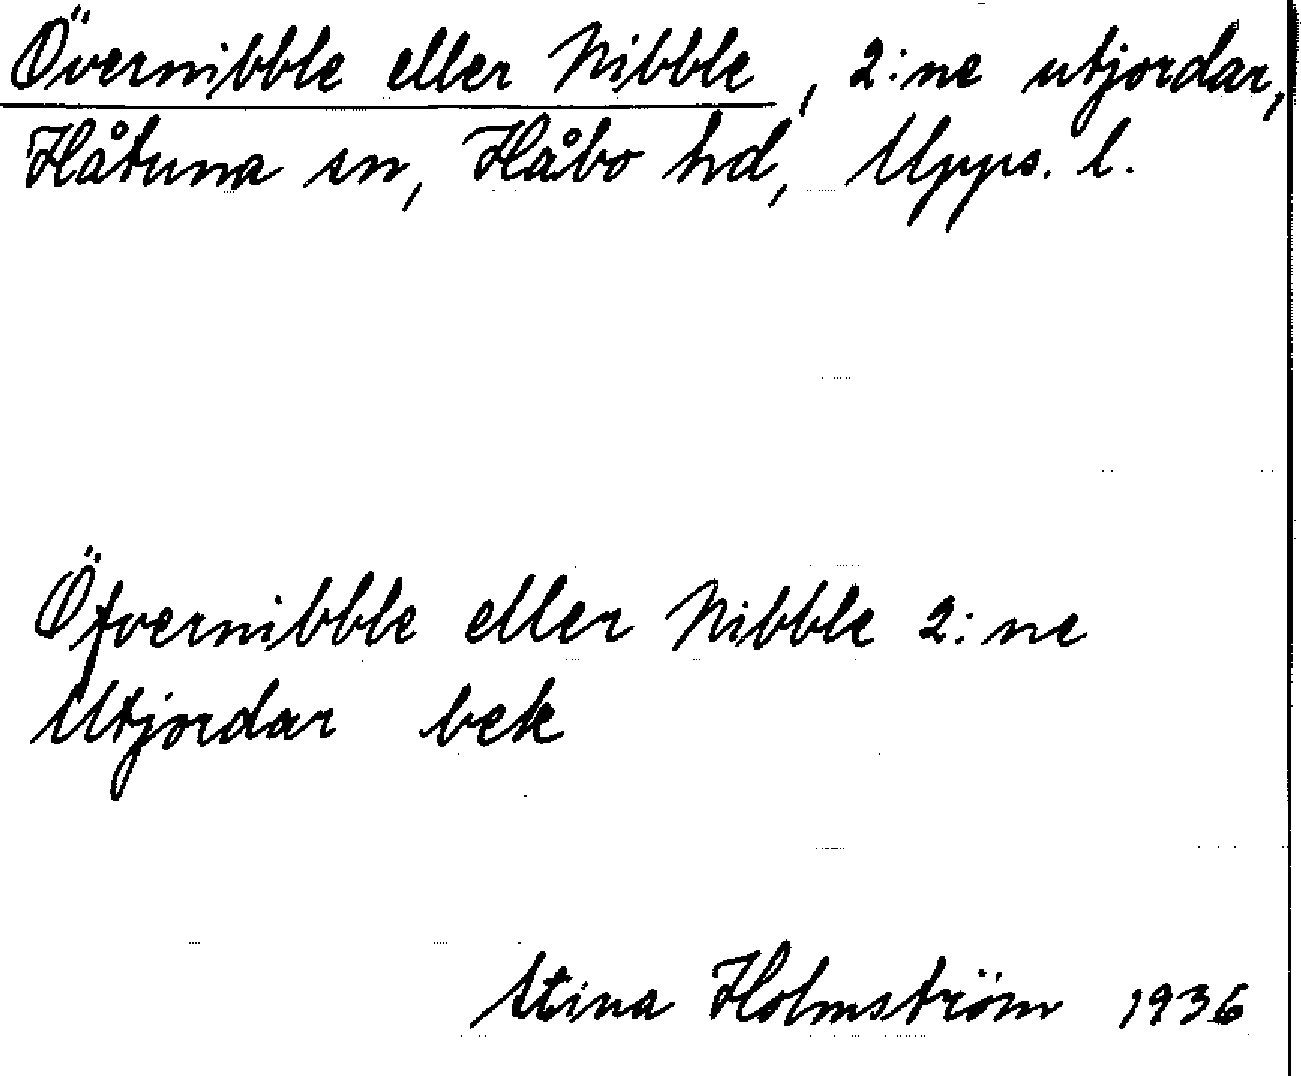 Övernibble eller Nibble, 2:ne utjordar,
Håtuna sn, Håbo hd, Upps. l.
Öfvernibble eller Nibble 2:ne
Utjordar bek
Stina Holmström 1936